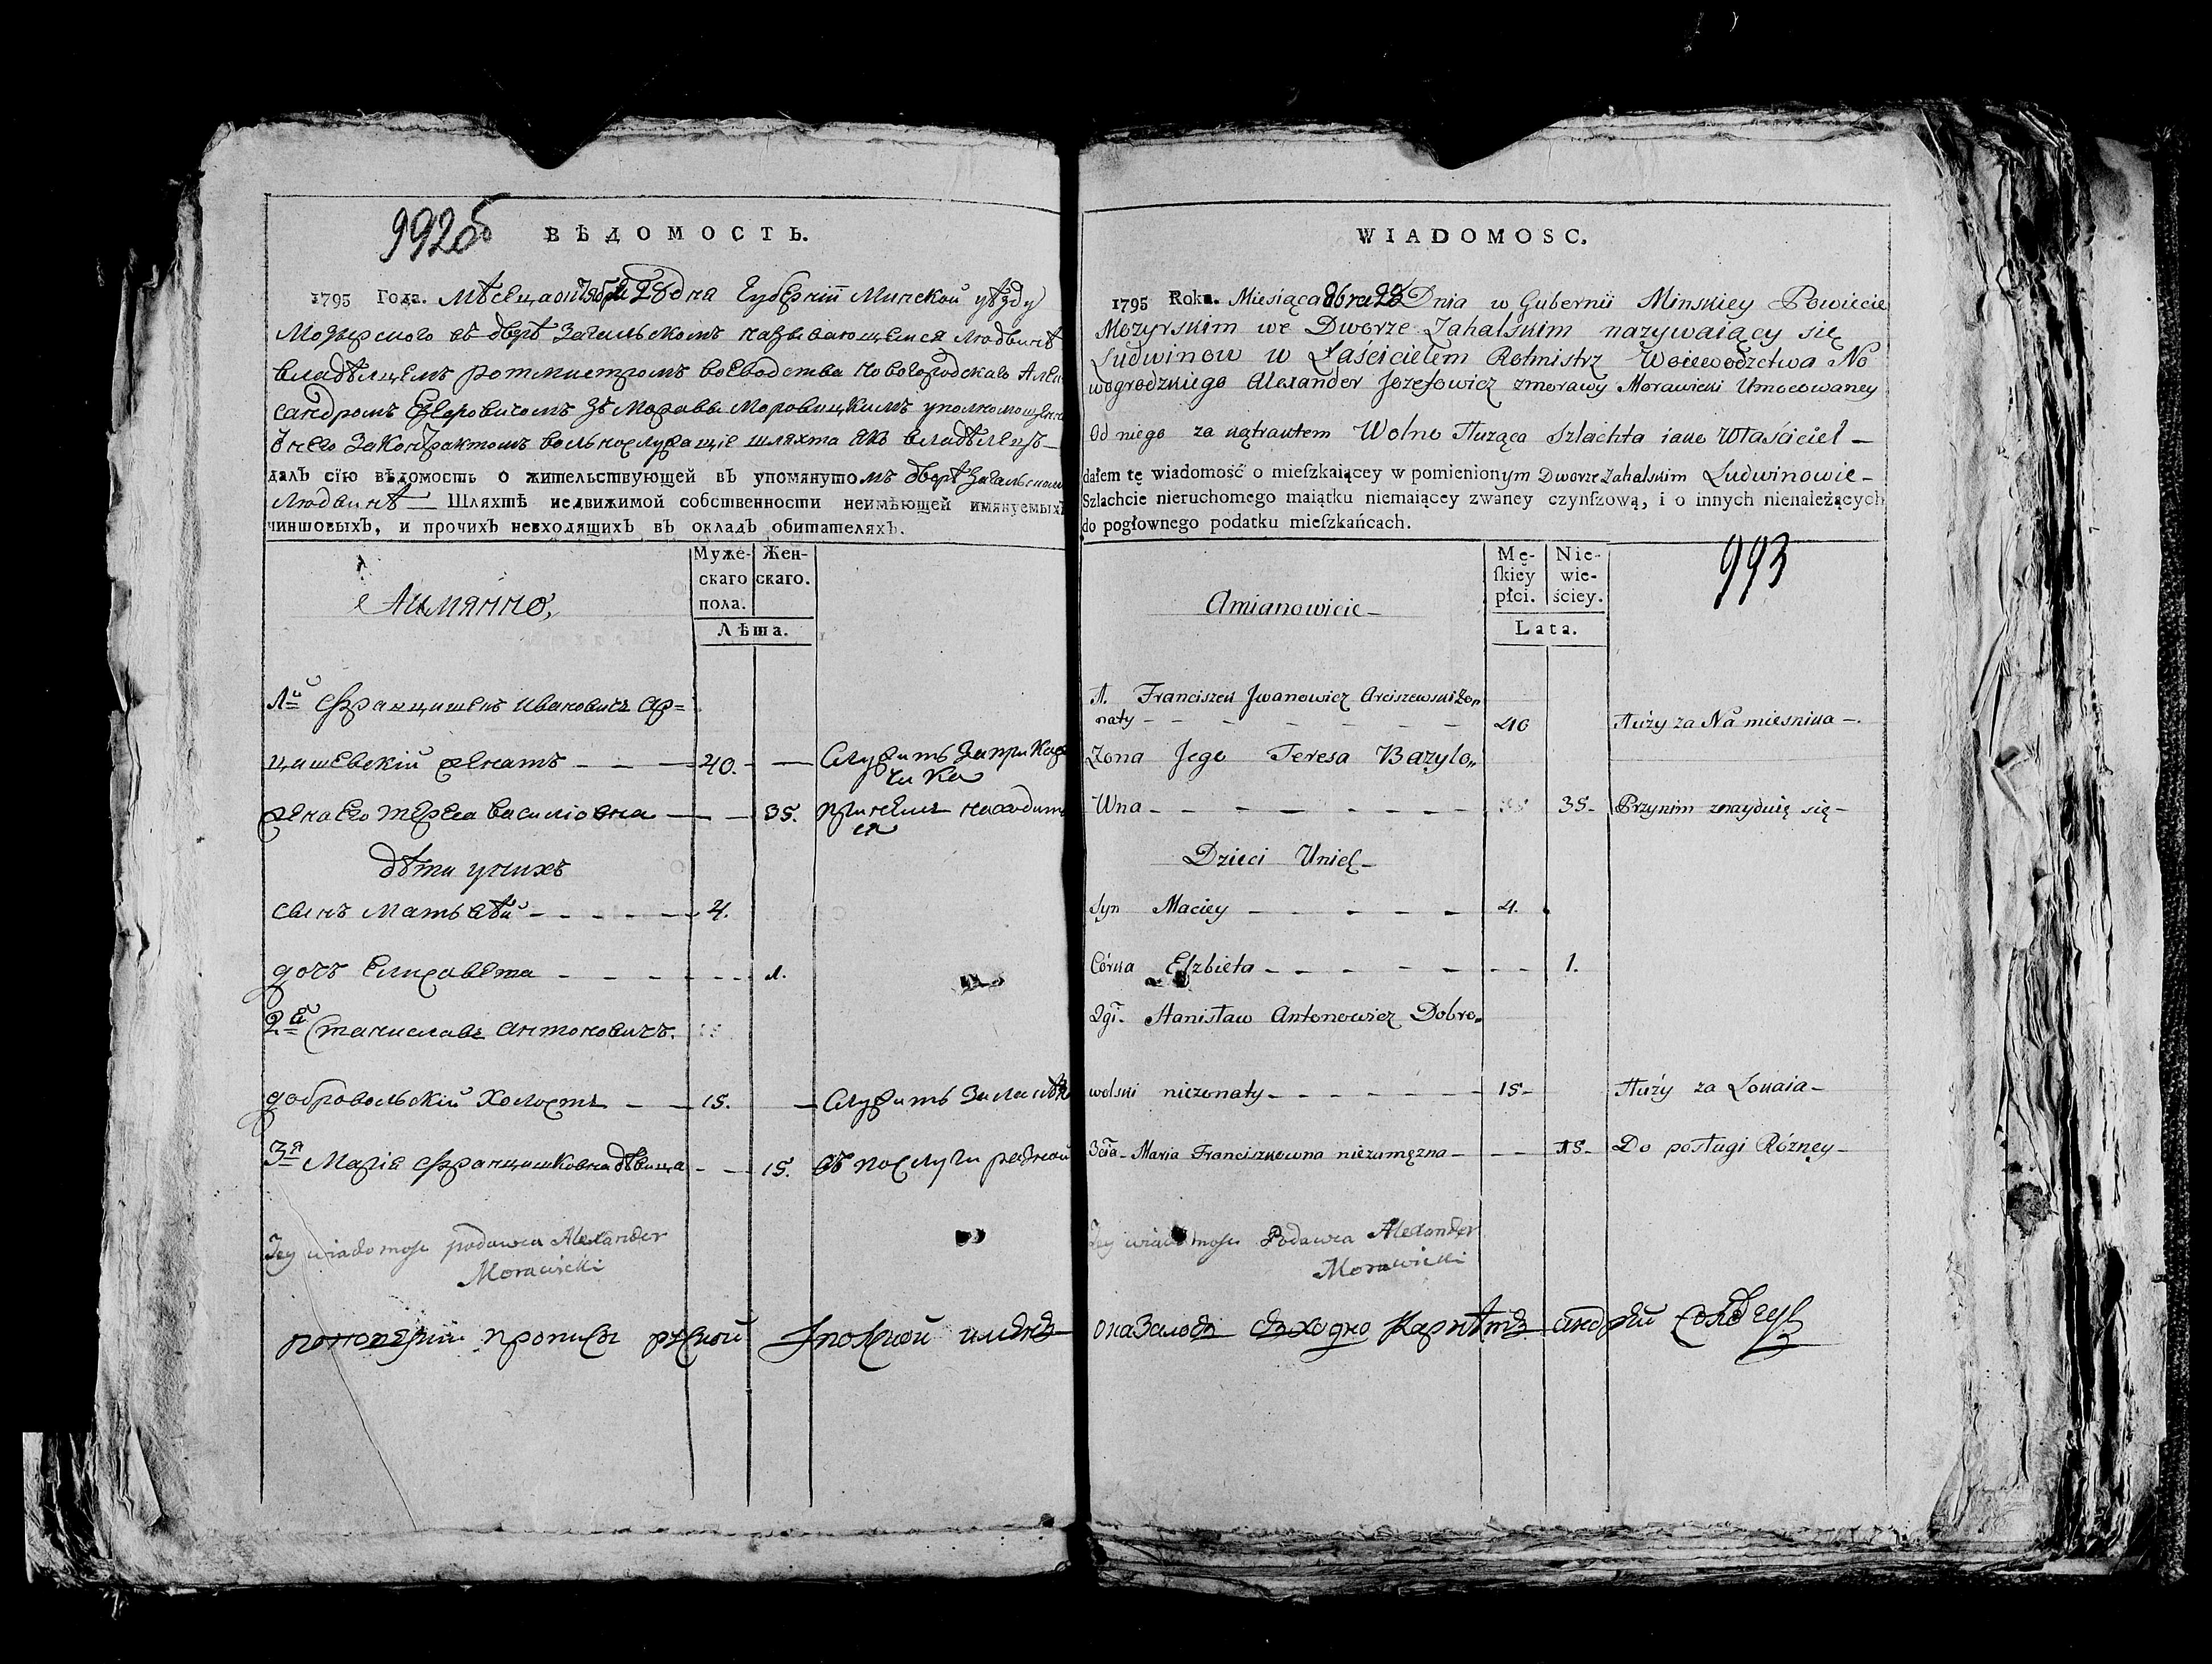 992об
ВѢДОМОСТЬ.
1795 Года. Мѣсяца октября 28 дна Губерніи Минской уѣзду
Мозырского въ дворѣ Загальскомъ называющемся Людвинѣ
владѣлцемъ ротмистромъ воеводства Новогородскаго Алек
сандромъ Езеровичомъ зъ Моравы Моровицкимъ уполномощенн
внего законтрактомъ вольнослужащіе шляхта якъ владѣлецъ
далъ сїю вѣдомость о жительствующей въ упомянутомъ дворѣ Загальскомъ
Людвинѣ — Шляхтѣ недвижимой собственности неимѣющей имянуемыхъ
чиншовыхъ, и прочихъ невходящихъ въ окладъ обитателяхъ.
Муже- Жен-
скаго скаго.
пола.
Лѣта.
Аимянно,
1й Францишекъ Ивановичъ Ар=
цишевскій женатъ — — — 40. — Служитъ Заприкаж
чика
жена Его Тереса Василіовна — — 35. принемъ находит
ся
дѣти унихъ
сынъ Матьвѣй — — — — — 4.
дочъ Елисавета — — — — — 1.
2й Станиславъ Антоновичъ.
добровольскій Холостъ — — 15. — Служитъ Залокѣя
3я Марія Францишковна дѣвица — — 15. въ послуги розной
Tey wiadomosc podawca Alexander
Morawicki
WIADOMOSC.
993
1795 Roka. Miesiąca 8bra 28 Dnia w Gubernii Minskiey Powiecie
Mozyrskim we Dworze Zahalskim nazywaiący się
Ludwinow w Łaścicielem Rotmistrz Woiewodztwa No
wogrodzkiego Alexander Jozefowicz zmorawy Morawicki Umocowaney
Od niego za kątraktem Wolno Służąca Szlachta iako Właściciel —
dałem tę wiadomość o mieſzkaiącey w pomienionym Dworze Zahalskim Ludwinowie —
Szlachcie nieruchomego maiątku niemaiącey zwaney czynſzową, i o innych nienależących
do pogłownego podatku mieſzkańcach.
Mę- Nie-
ſkiey wie-
płci. ściey.
Lata.
Amianowicie —
1. Franciszek Jwanowicz Arciszewski Żo„
naty — — — — — — 40 Służy za Na miesnika —.
Zona Jego Teresa Bazylo„
Wna — — — — — — — 35 — Przynim znayduię się —
Dzieci Unich —
Syn Maciey — — — — — 4.
Córka Elzbieta — — — — — — — 1.
2gi. Stanisław Antonowicz Dobro„
wolski niezonaty — — — — — — — 15 — Służy za Lokaia —
3cia — Maria Franciszkowna niezamęzna — — — 15 — Do posługi Rózney —
Tey wiadomosc Podawca Alexander
Morawicki
прописи оказалось сходно Карнетъ Андрей